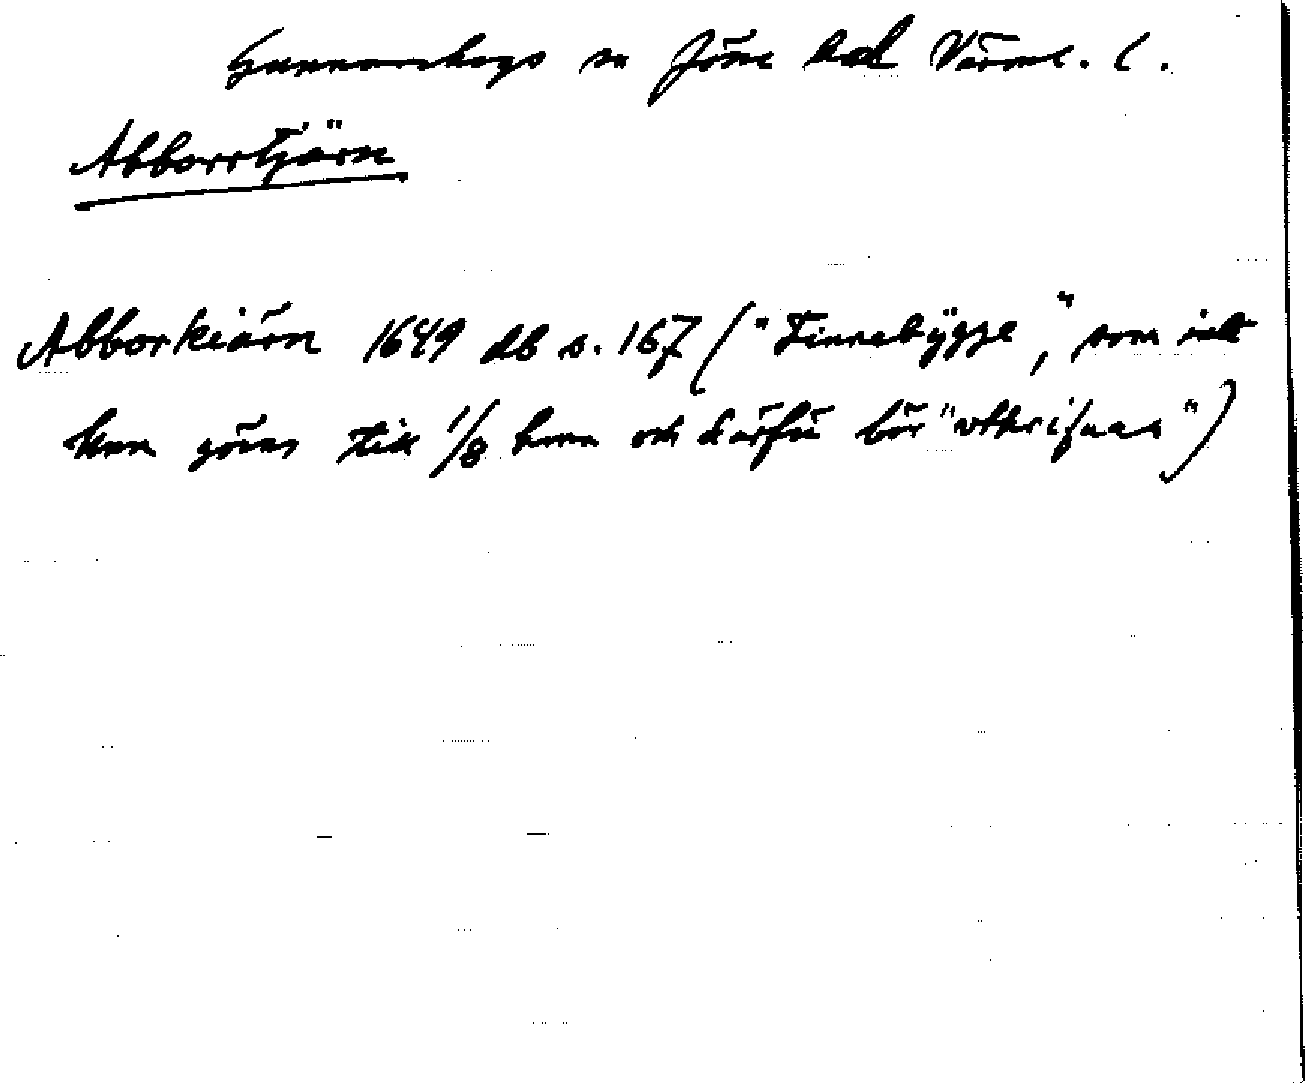 Gunnarskogs sn Jösse hd Värml. l.
Abborrtjärn
Abborkiärn 1649 db s. 167 ("Finnebÿgge", som icke
kan göras till 1/8 hem och därför bör "vthrifuas")